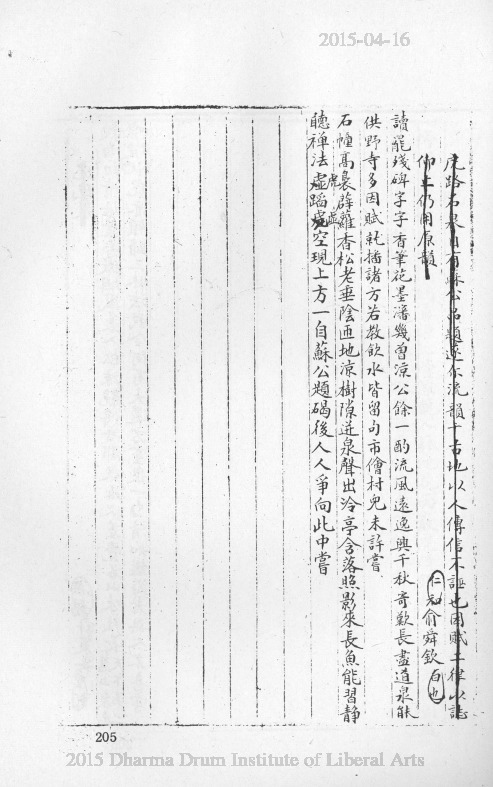 2015-04-16
虎路石泉自有蘇公品題遂仁流韻千古地以人傳信不誣也因賦二律以誌
仰止仍用原韻
仁和俞舜欽百也
讀罷殘碑字字香筆花墨瀋幾曾涼公餘一酌流風遠逸興千秋寄歎長盡道泉能
供野寺多因賦就播諸方若教飲水皆留句市儈村兒未許嘗
石幢高裊薜蘿香松老垂陰匝地涼樹隙迸泉聲出冷亭含落照影來長魚能習静
聽禪法虛蹈虎空現上方一自蘇公題碣後人人爭向此中嘗
虎
虛
205
2015 Dharma Drum Institute of Liberal Arts